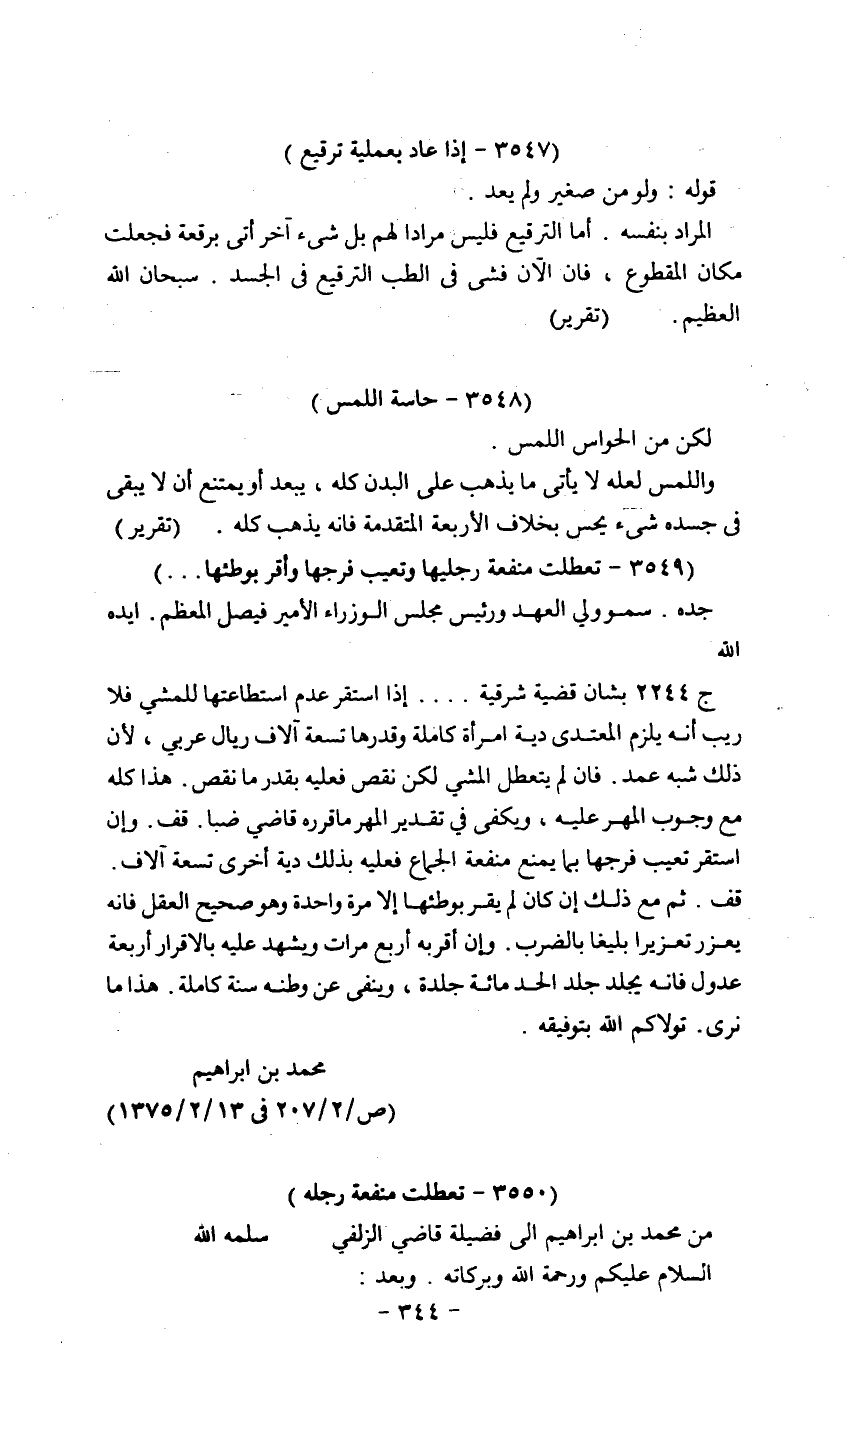 (٣٥٤٧ - إذا عاد بعملية ترقيع )
قوله : ولو من صغير ولم يعد .
المراد بنفسه . أما الترقيع فليس مرادا لهم بل شىء آخر أتى برقعة فجعلت
مكان المقطوع ، فان الآن فشى فى الطب الترقيع فى الجسد . سبحان الله
العظيم . (تقرير)
(٣٥٤٨ - حاسة اللمس )
لكن من الحواس اللمس .
واللمس لعله لا يأتى ما يذهب على البدن كله ، يبعد أو يمتنع أن لا يبقى
فى جسده شىء يحس بخلاف الأربعة المتقدمة فانه يذهب كله . (تقرير )
(٣٥٤٩ - تعطلت منفعة رجليها وتعيب فرجها وأقر بوطئها . . . )
جده . سمو ولي العهد ورئيس مجلس الوزراء الأمير فيصل المعظم . ايده
الله
ج ٢٢٤٤ بشان قضية شرقية . . . . إذا استقر عدم استطاعتها للمشي فلا
ريب أنه يلزم المعتدى دية امرأة كاملة وقدرها تسعة آلاف ريال عربي ، لأن
ذلك شبه عمد . فان لم يتعطل المشي لكن نقص فعليه بقدر ما نقص . هذا كله
مع وجوب المهر عليه ، ويكفى في تقدير المهر ماقرره قاضي ضبا . قف . وإن
استقر تعيب فرجها بما يمنع منفعة الجماع فعليه بذلك دية أخرى تسعة آلاف .
قف . ثم مع ذلك إن كان لم يقر بوطئها إلا مرة واحدة وهو صحيح العقل فانه
يعزر تعزيرا بليغا بالضرب . وإن أقر به أربع مرات ويشهد عليه بالاقرار أربعة
عدول فانه يجلد جلد الحد مائة جلدة ، وينفى عن وطنه سنة كاملة . هذا ما
نرى . تولاكم الله بتوفيقه .
محمد بن ابراهيم
(ص/٢٠٧/٢ فى ١٣٧٥/٢/١٣)
(٣٥٥٠ - تعطلت منفعة رجله )
من محمد بن ابراهيم الى فضيلة قاضي الزلفي سلمه الله
السلام عليكم ورحمة الله وبركاته . وبعد :
- ٣٤٤ -